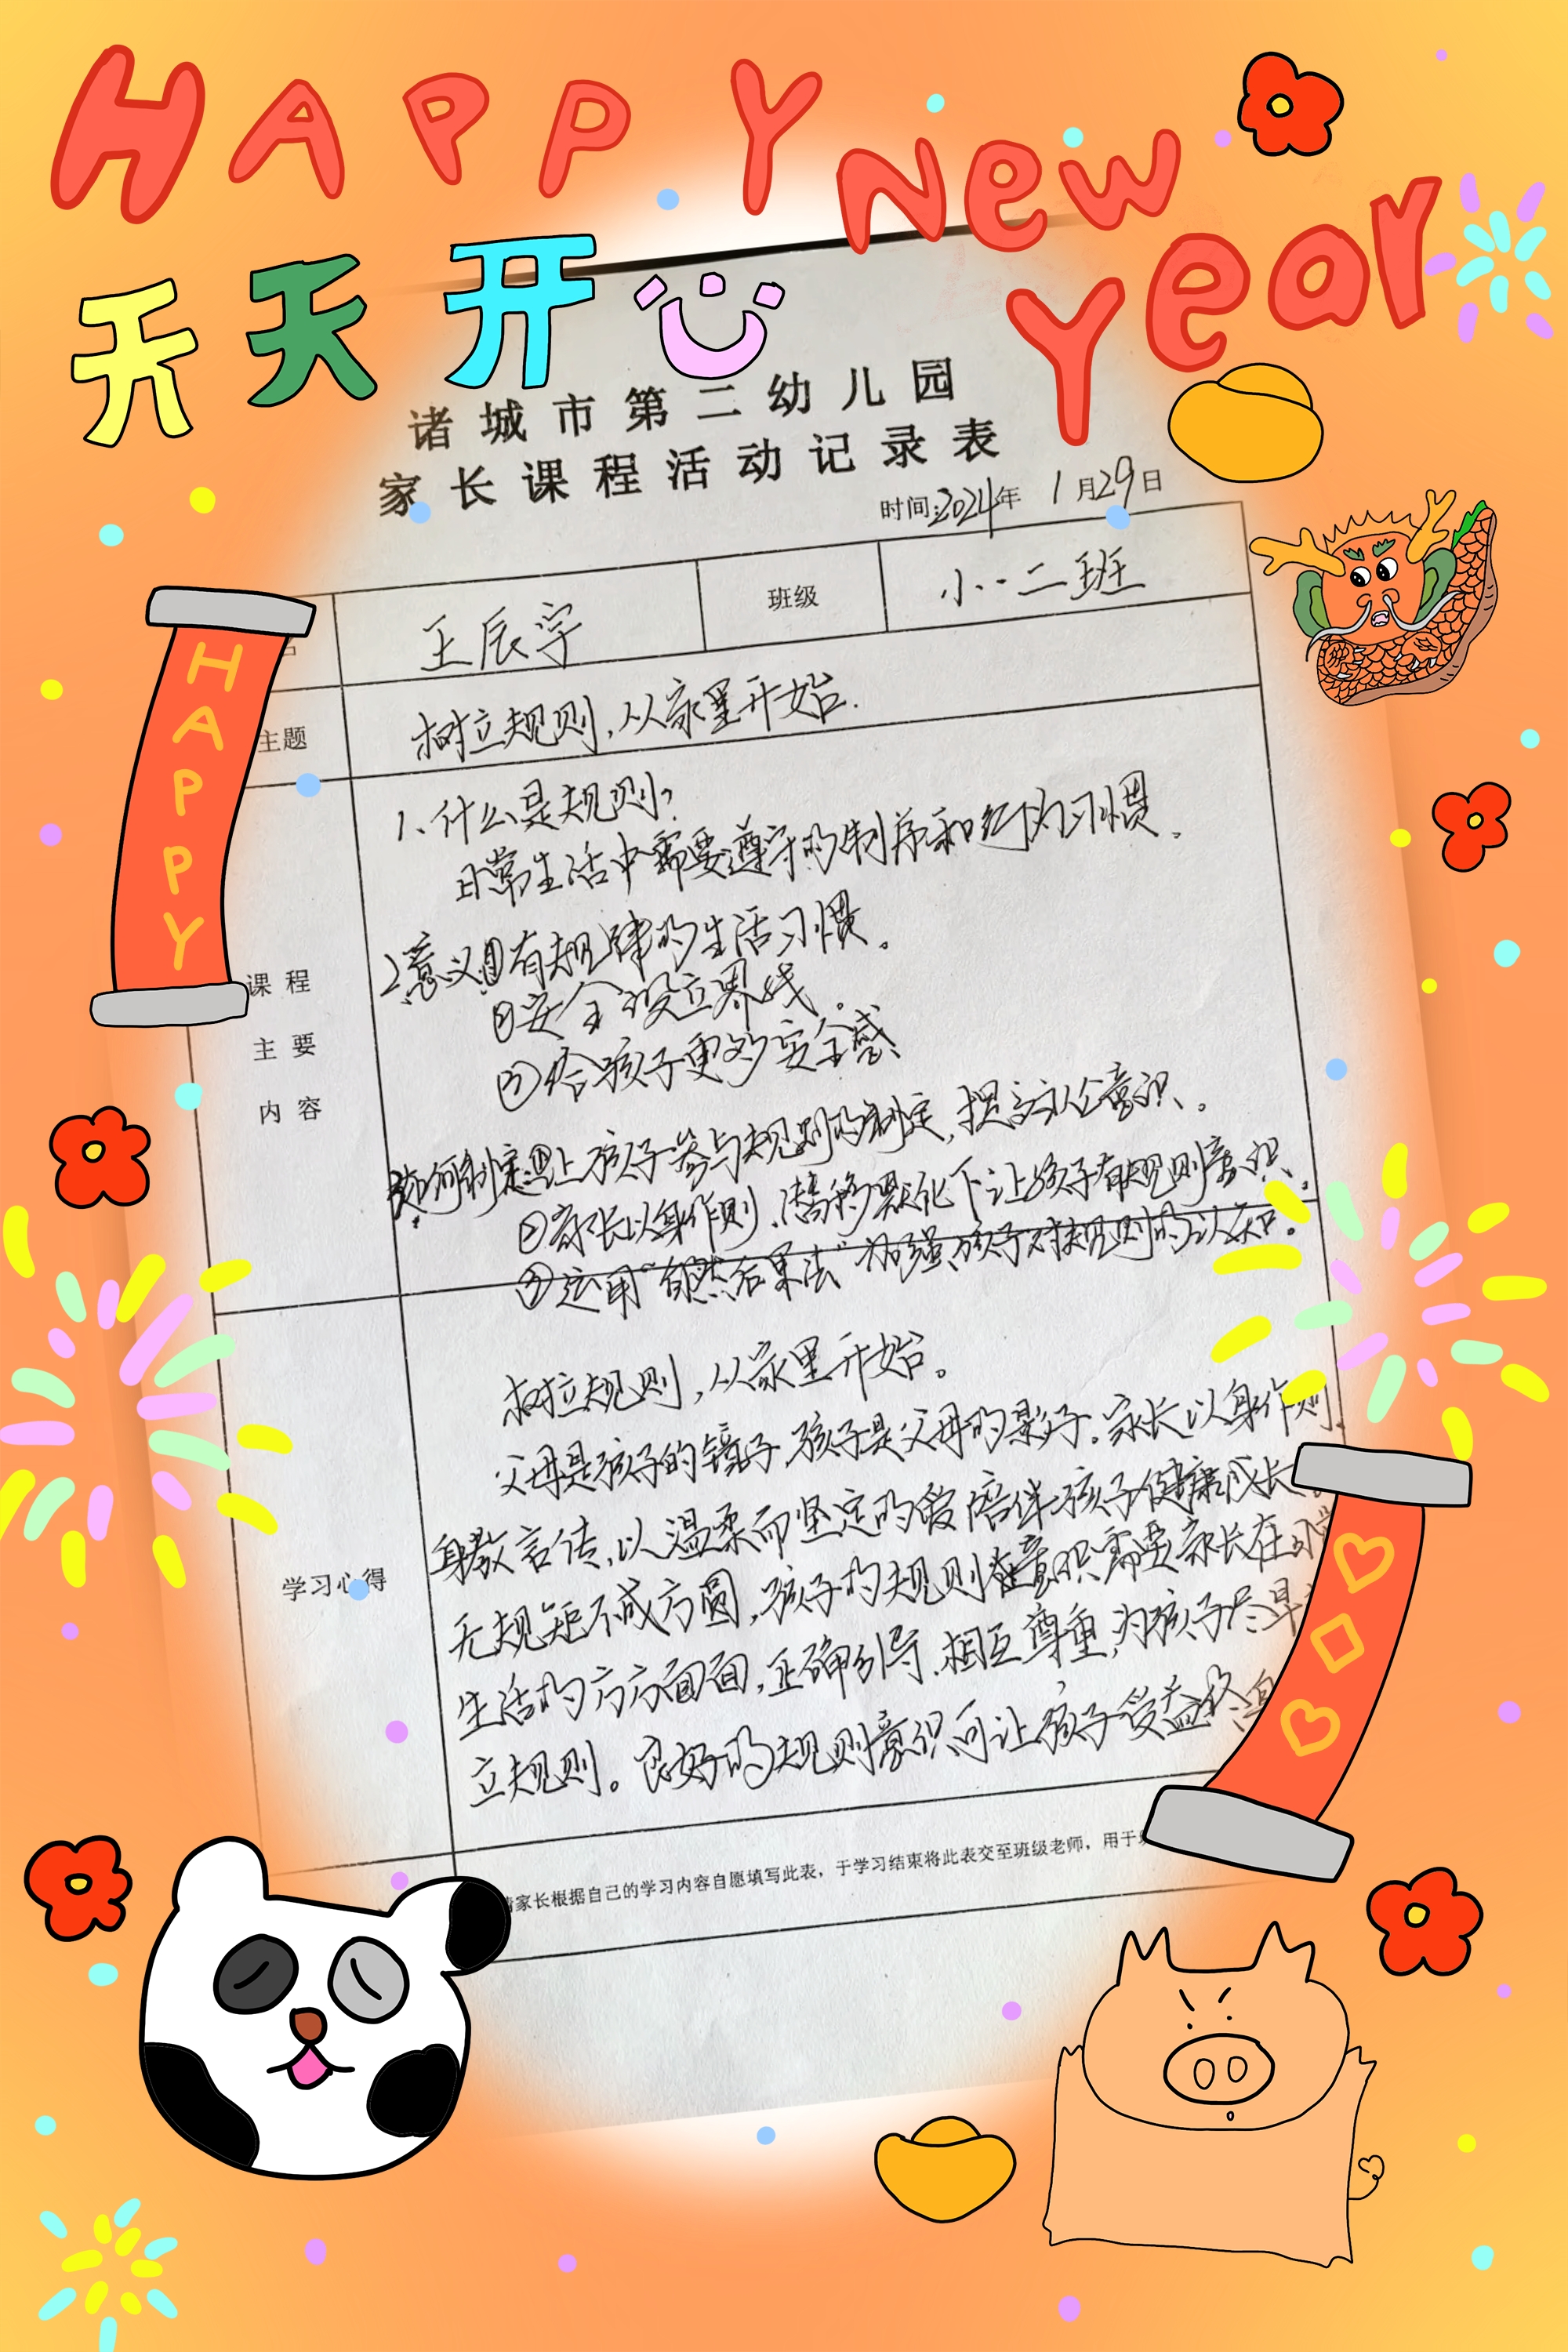 HAPPY New Year
天天开
诸城市第二幼儿园
家长课程活动记录表
时间:2024年 1月29日
王辰宇 班级 小·二班
主题 树立规则,从家里开始.
1、什么是规则?
日常生活中需要遵守的制度和行为习惯。
2意义①有规律的生活习惯。
②安全设立界线。
③给孩子更多安全感
如何制定①让孩子参与规则的制定,提高认知意识。
②家长以身作则,潜移默化下让孩子有规则意识。
③运用“自然后果法”加强孩子对规则的认知。
课程
主要
内容
树立规则,从家里开始。
父母是孩子的镜子,孩子是父母的影子。家长以身作则,
身教言传,以温柔而坚定的爱陪伴孩子健康成长
无规矩不成方圆,孩子的规则意识需要家长在
生活的方方面面,正确引导,相互尊重,为孩子尽早
立规则。良好的规则意识可让孩子受益终
学习心得
请家长根据自己的学习内容自愿填写此表,于学习结束将此表交至班级老师,用于
HAPPY